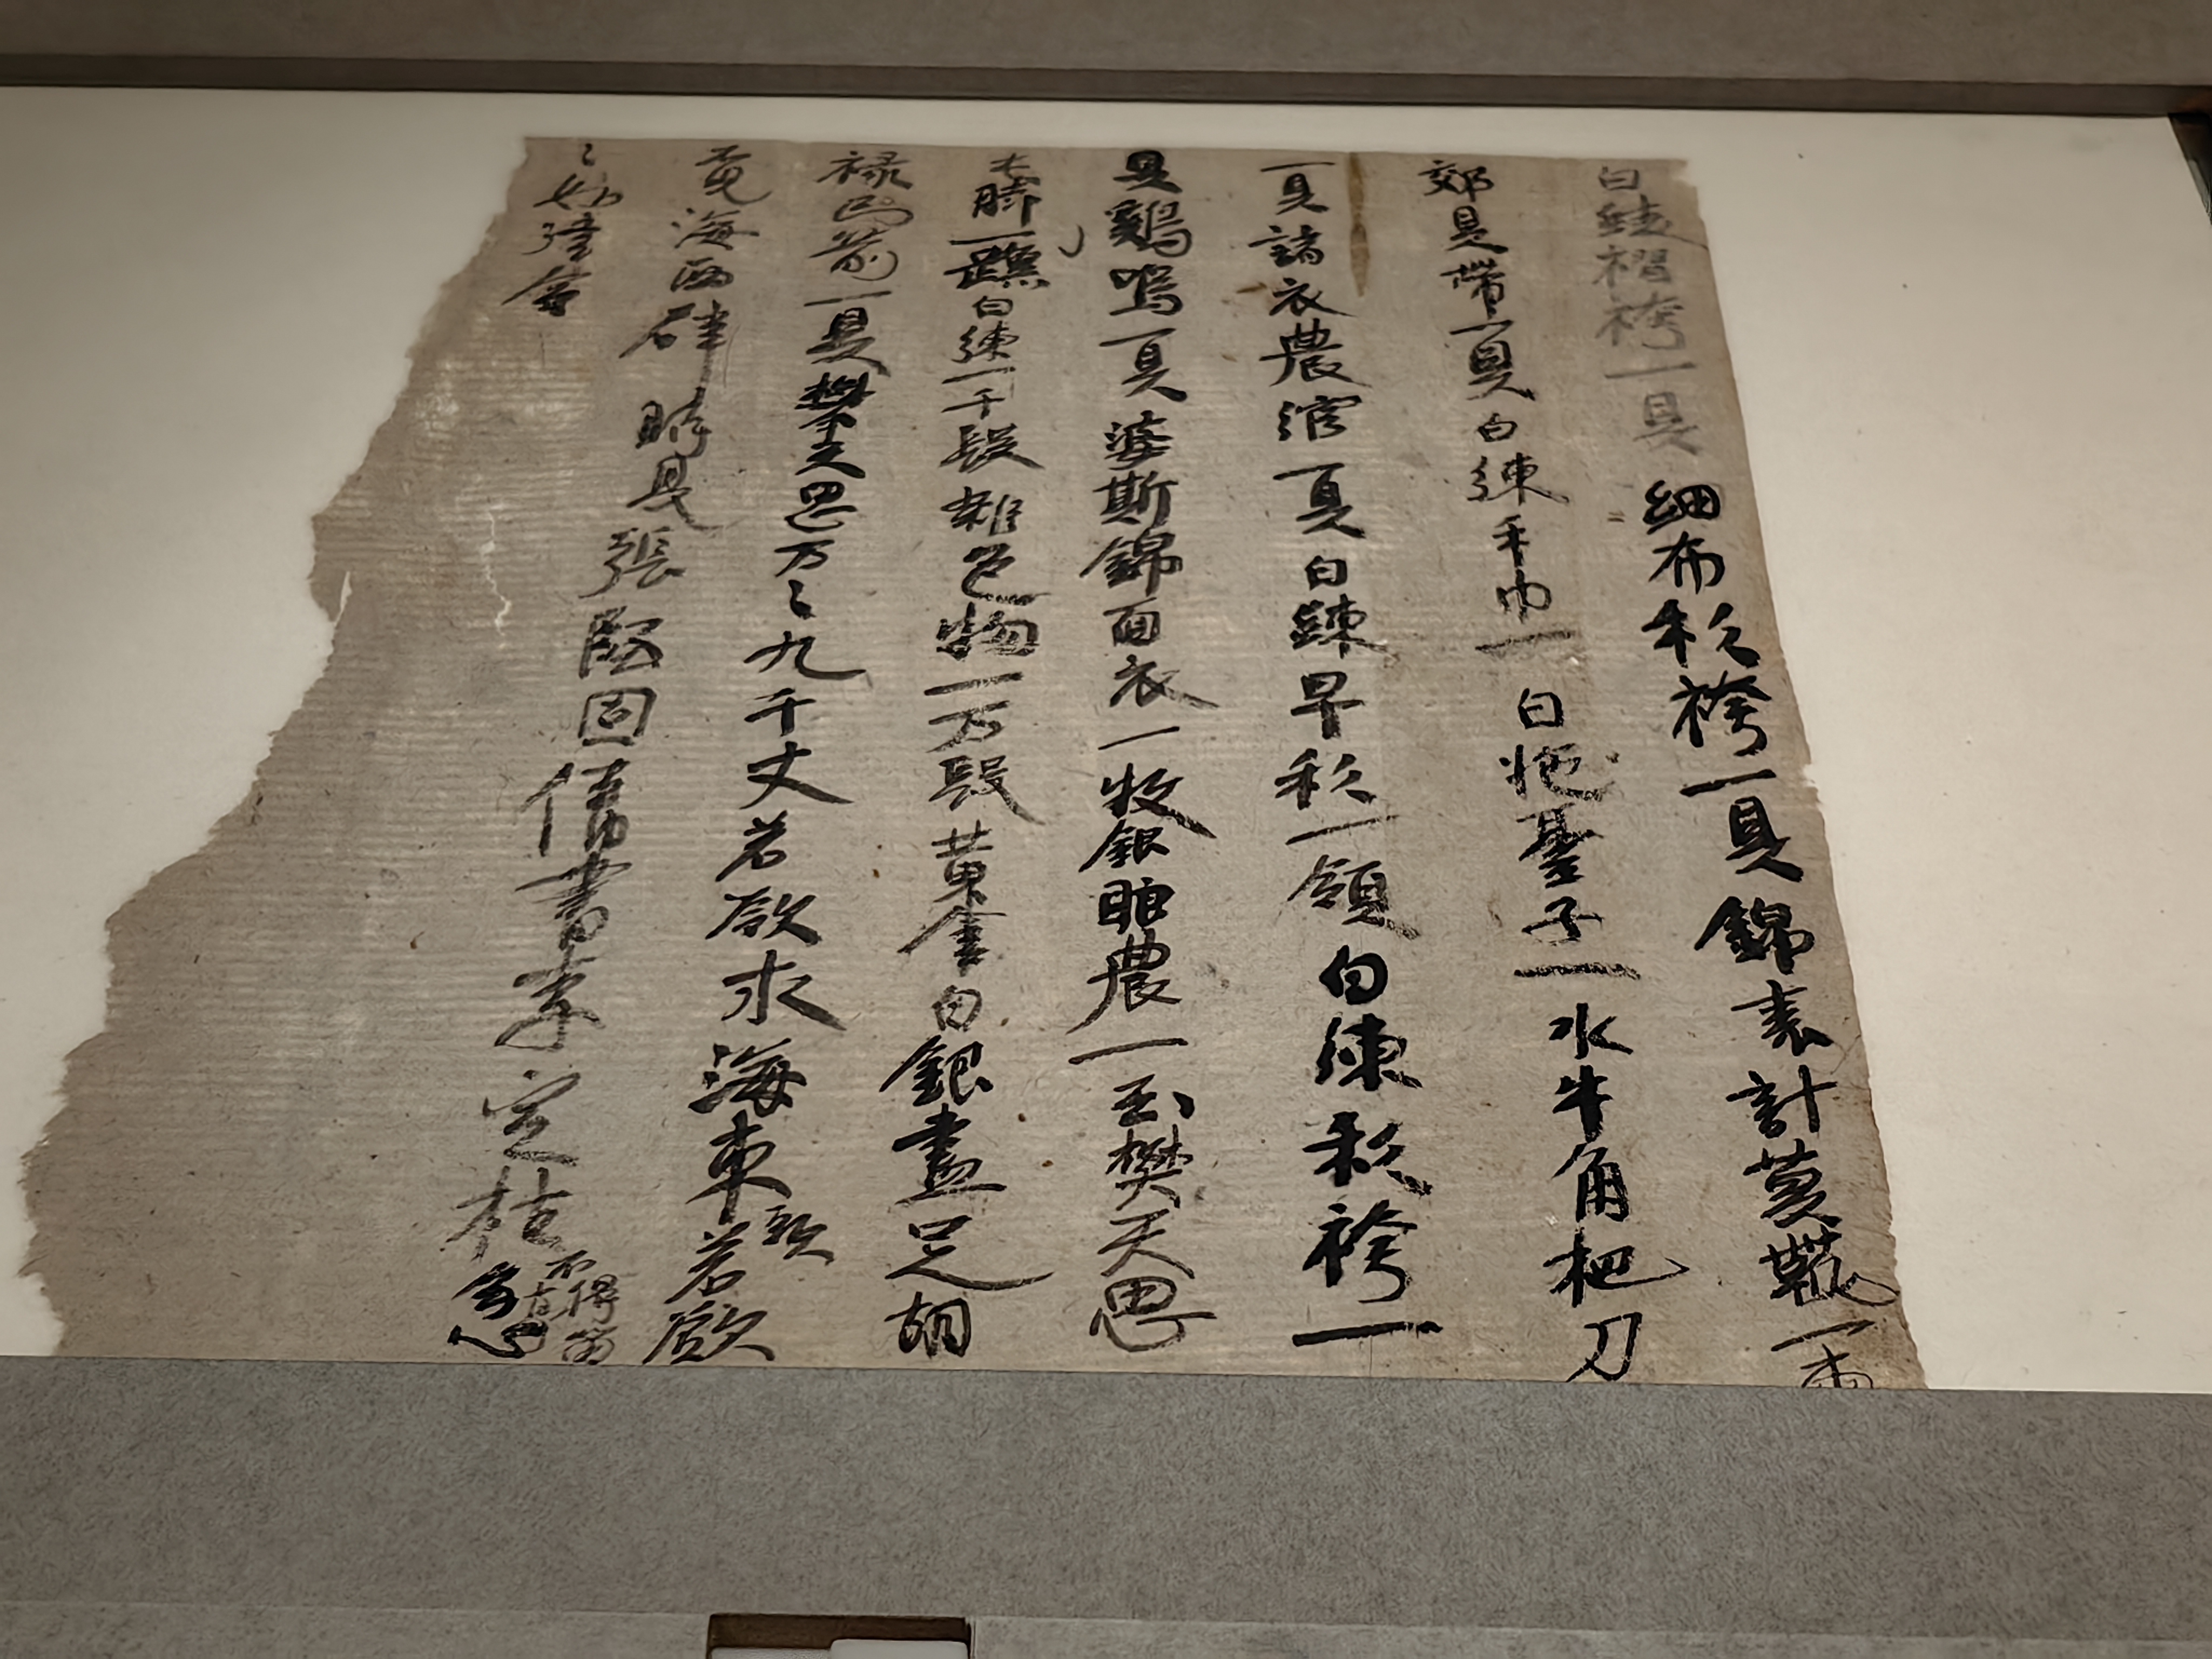 白綾褶袴一具 細布衫袴一具 錦素計莫靴一兩
郊具帶一具 白練手巾一 白 子一 水牛角把刀
一具 諸衣農綰一具 白練早衫一領 白練衫袴一
具 鷄嗚一具 婆斯錦面衣一枚 銀眼農一 玉樊天思
脚一 白練一千段 雜色物一万段 黃金白銀盡足 胡
祿弓箭一具 攀天思万〻九千丈 若欲求海東頭 若欲
覓海西 時見張堅固 倩書李定杜 不得留 急
〻如律令